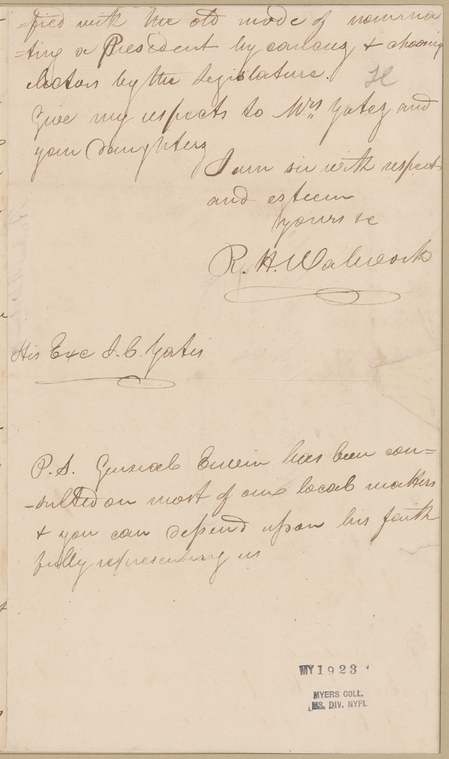 -fied with the old mode of nomina
-ting a President by caucus & choosing
electors by the legislature.
Give my respects to Mrs Yates and
your daughters
I am sir with respect
and esteem
yours &c
R. H. Walworth
His Exc J. C. Yates
P. S. General has been con=
-sulted on most of our local matters
& you can depend upon his faith
fully representing us
MY 1923
MYERS COLL.
MS. DIV. NYPL